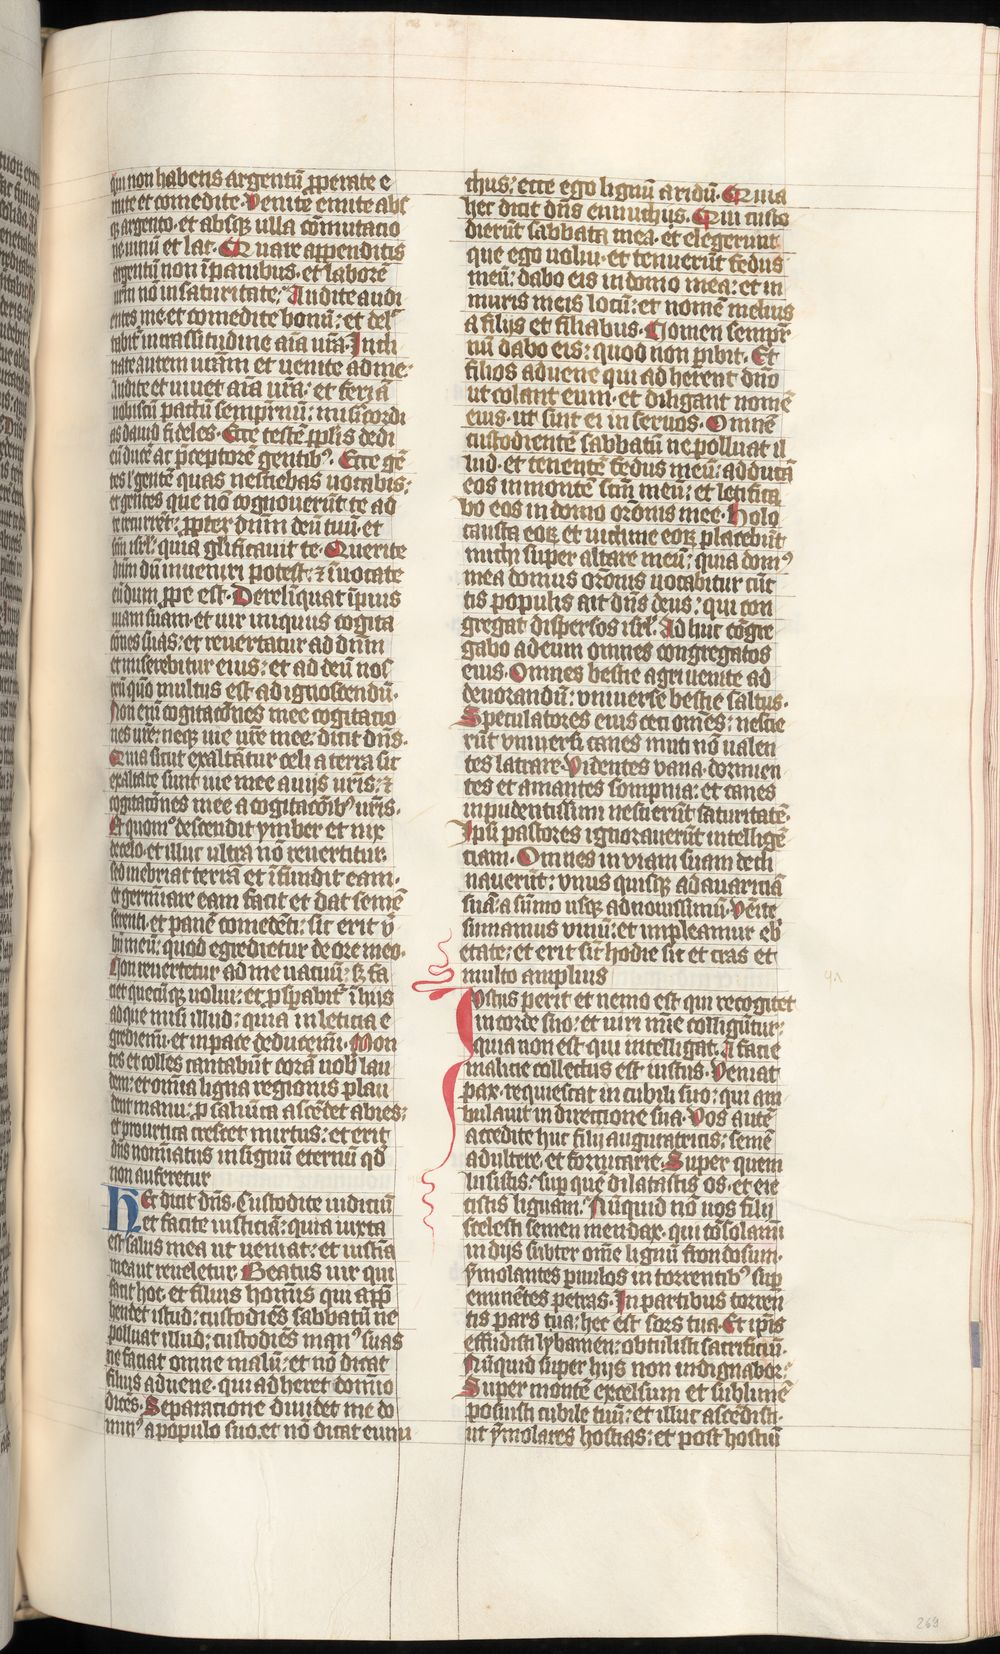 qui non habetis argentū ꝓperate e
mite et comedite· Venite emite abſ
qꝫ argento· et absqꝫ ulla cōmutacio
ne vinū et lac· Quare appenditis
argentū non ī panibus· et laborē
vrm̄ nō in saturitate; Audite audi
entes me et comedite bonū: et del
tabit᷑ in crassitudine aīa vrā· Incli
nate aurem vrām et venite ad me·
Audite et vivet aīa vrā: et feriā
vobiscū pactū sempitnū: mīsicordi
as david fideles· Ecce testē ꝓplis dedi
eū ducē ac p̄ceptorē gentibꝰ· Ecce gē
tes l'gentē quas nesciebas vocabis:
et gentes que nō cognoverūt te ad
te current: ꝓpter dnm deū tuū· et
scm̄ isrl̄: quia gl̄ificavit te· Querite
dnm dū inveniri potest: ⁊ īvocate
eū dum ꝓpe est· Derelīquat īpius
viam suam· et vir iniquus cogita
cōnes suas: et revertatur ad dnm
et miserebitur eius: et ad deū nos
trū qm̄o multus est ad ignoscendū·
Non enī cogitacōnes mee cogitacio
nes vrē: neqꝫ vie vrē mee: dicit dn̄s·
Quia sicut exaltātur celi a terra sic
exaltate sunt vie mee a vijs vrīs: ⁊
cogitacōnes mee a cogitacōibꝰ vrīs·
Et quomᵒ descendit ymber et nix
de celo· et illuc ultra nō revertitur·
sed inebriat terrā et īfundit eam·
et germīare eam facit et dat semē
serenti· et panē comedēti: sic erit v̄
bū meū: quod egredietur de ore meo·
Non revertetur ad me vacuū: sꝫ fa
ciet quecūqꝫ volui: et ꝓspabit᷑ ī hijs
ad que misi illud: quia in leticia e
grediemī· et in pace deducemī· Mon
tes et colles cantabūt corā vob lau
dem: et omīa ligna regionis plau
dent manu: p saliūca ascēdet abies:
et pro urtica crescet mirtus: et erit
dn̄s nomīatus in signū eternū qd
non auferetur
Hec dicit dn̄s· Custodite iudiciū
et facite iusticiā: quia iuxta
est salus mea ut veniat: et iusticīa
mea ut reveletur· Beatus vir qui
facit hoc· et filius homīs qui app̄
hendet istud: custodiēs sabbatū ne
polluat illud: custodiēs manꝰ suas
ne faciat omne malū: et nō dicat
filius advene· qui adheret domīo
dicēs· Separacione dividet me do
minꝰ a populo suo et nō dicat eunu
chus: ecce ego lignū aridū· Quia
hec dicit dn̄s eunuchijs· Qui custo
dierūt sabbata mea· et elegerunt
que ego volui· et tenuerūt fedus
meū: dabo eis in domo mea: et in
muris meis locū: et nomē melius
a filijs et filiabus· Nomen sempit᷑
nū dabo eis: quod non pibit· Et
filios advene qui adherent dn̄o
ut colant eum· et diligant nomē
eius· ut sint ei in servos· Omnē
custodientē sabbatū ne polluat il
lud· et tenentē fedus meū: adducā
eos in montē scm̄ meū: et letifica
bo eos in domo orōnis mee· Holo
causta eoꝝ et victime eoꝝ placebūt
michi super altare meū: quia domꝰ
mea domus orōnis vocabitur cūc
tis populis ait dn̄s deus: qui con
gregat dispersos isrl̄· Ad huc cōgre
gabo ad eum omnes congregatos
eius· Omnes bestie agri venite ad
devorandū: universe bestie saltus·
Speculatores eius ceci omēs: nescie
rūt universi canes muti nō valen
tes latrare· Videntes vana· dormien
tes et amantes sompnia: et canes
inpudentissimi nescierūt saturitatē·
Ipsi pastores ignoraverūt intelligē
ciam· Omnes in viam suam decli
naverūt: unus quisqꝫ ad avariciā
suā· a sūmo usqꝫ ad novissimū· Vēite
sumamus vinū: et impleamur eb
etate: et erit sic̄ hodie sic et cras et
multo amplius
Iustus perit et nemo est qui recogitet
in corde suo: et viri mīe colligūtur:
quia non est qui intelligat· A facie
malicie collectus est iustus· Veniat
pax· requiescat in cubili suo: qui am
bulavit in directione sua· Vos autē
accedite huc filij auguratricis: semē
adultere· et fornicarie· Super quem
lusistis: sup que dilatastis os· et eie
cistis liguam: Nūquid nō vos filij
scelesti semen mendax· qui cōsolamī
in dijs subter omē lignū frondosum·
ymolantes pvulos in torrentibꝰ sup
eminētes petras· In partibus torren
tis pars tua: hec est sors tua· Et ip̄is
effudisti lybamen: obtulisti sacrificiū·
Nūquid super hijs non indignabor:
Super montē excelsum et sublimē
posuisti cubile tuū: et illuc ascēdisti·
ut ymolares hostias: et post hostiū
269